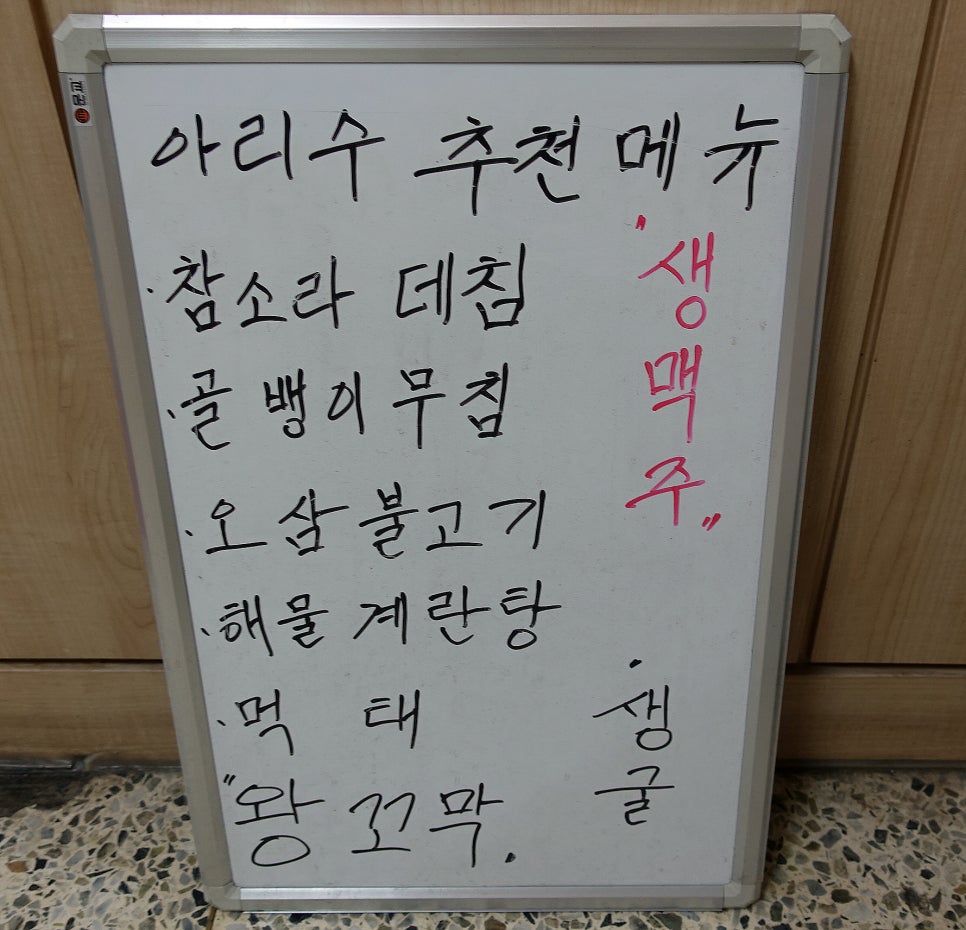 아리수 추천 메뉴
· 참소라 데침
· 골뱅이무침
· 오삼불고기
· 해물 계란탕
· 먹 태
"왕 꼬막.
"생맥주"
· 생굴